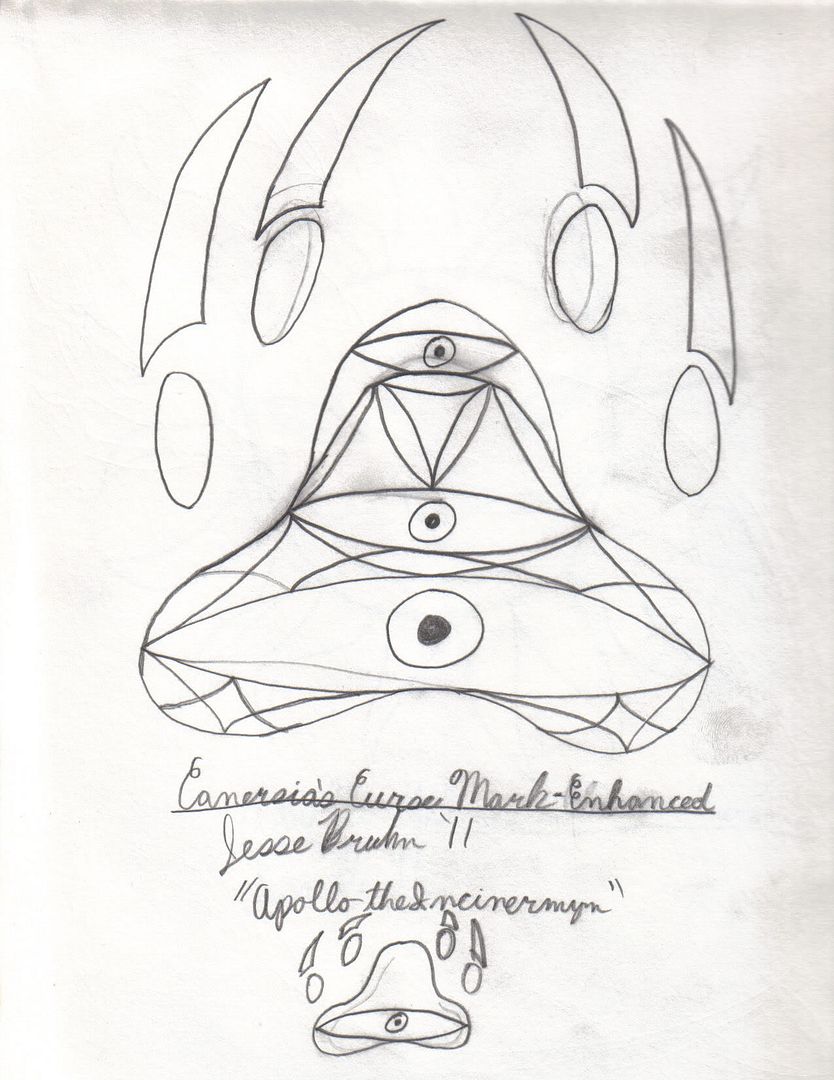 Canersia's Curse Mark-Enhanced
Jesse Bruhn '11
"Apollo the Incinermyn"